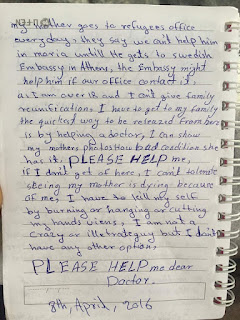 my mother goes to refugees office
everyday. They say we can't help him
in moria untill He gets to swedish
Embassy in Athens, the Embassy might
help him if our office contact it.
as I am over 18 and I can't give family
reciunification. I have to get to my family
the quickest way to be released from here
is by helping a doctor, I can show
my mothers photos How bad condition she
has it, PLEASE HELP me,
if I don't get of here, I can't tolerate
seing my mother is dying because
of me, I have to kill my self
by burning or hanging or cutting
my hands viens, I am not a
crazy or illetrate guy but I don't
have any other option,
PLEASE HELP me dear
Doctor.
8th, April, 2016